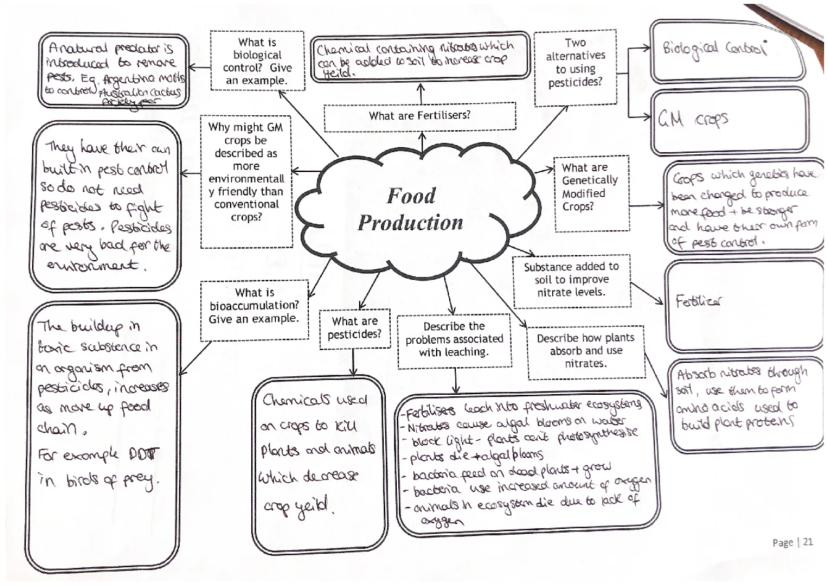 A natural predator is
introduced to remove
pests. Eg. Argentine moths
to control Australian cactus
What is
biological
control? Give
an example.
Chemical containing nitrates which
can be added to soil to increase crop
yeild.
What are Fertilisers?
Two
alternatives
to using
pesticides?
Biological Control
GM crops
They have their own
built in pest control
so do not need
pesticides to fight
of pests. Pesticides
are very bad for the
environment.
Why might GM
crops be
described as
more
environmentall
y friendly than
conventional
crops?
Food
Production
What are
Genetically
Modified
Crops?
Crops which genetics have
been changed to produce
more food + be stronger
and have their own form
of pest control.
Substance added to
soil to improve
nitrate levels.
Fertilizer
What is
bioaccumulation?
Give an example.
The buildup in
toxic substance in
an organism from
pesticides, increases
as move up food
chain.
For example DDT
in birds of prey.
What are
pesticides?
Chemicals used
on crops to kill
plants and animals
which decrease
crop yeild.
Describe the
problems associated
with leaching.
- Fertilisers leach into freshwater ecosystems
- Nitrates cause algal blooms on water
- block light - plants can't photosynthesise
- plants die + algal blooms
- bacteria feed on dead plants + grow
- bacteria use increased amount of oxygen
- animals in ecosystem die due to lack of
oxygen
Describe how plants
absorb and use
nitrates.
Absorb nitrates through
soil, use them to form
amino acids used to
build plant proteins
Page | 21